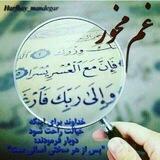 Harfhay_mandegar
غم مخور
فَإِنَّ مَعَ الْعُسْرِ يُسْرًا
وَإِلَىٰ رَبِّكَ فَارْغَبْ
خداوند برای اینکه
خیالت راحت شود
دوبار فرموده:
"پس از هر سختی آسانی است"